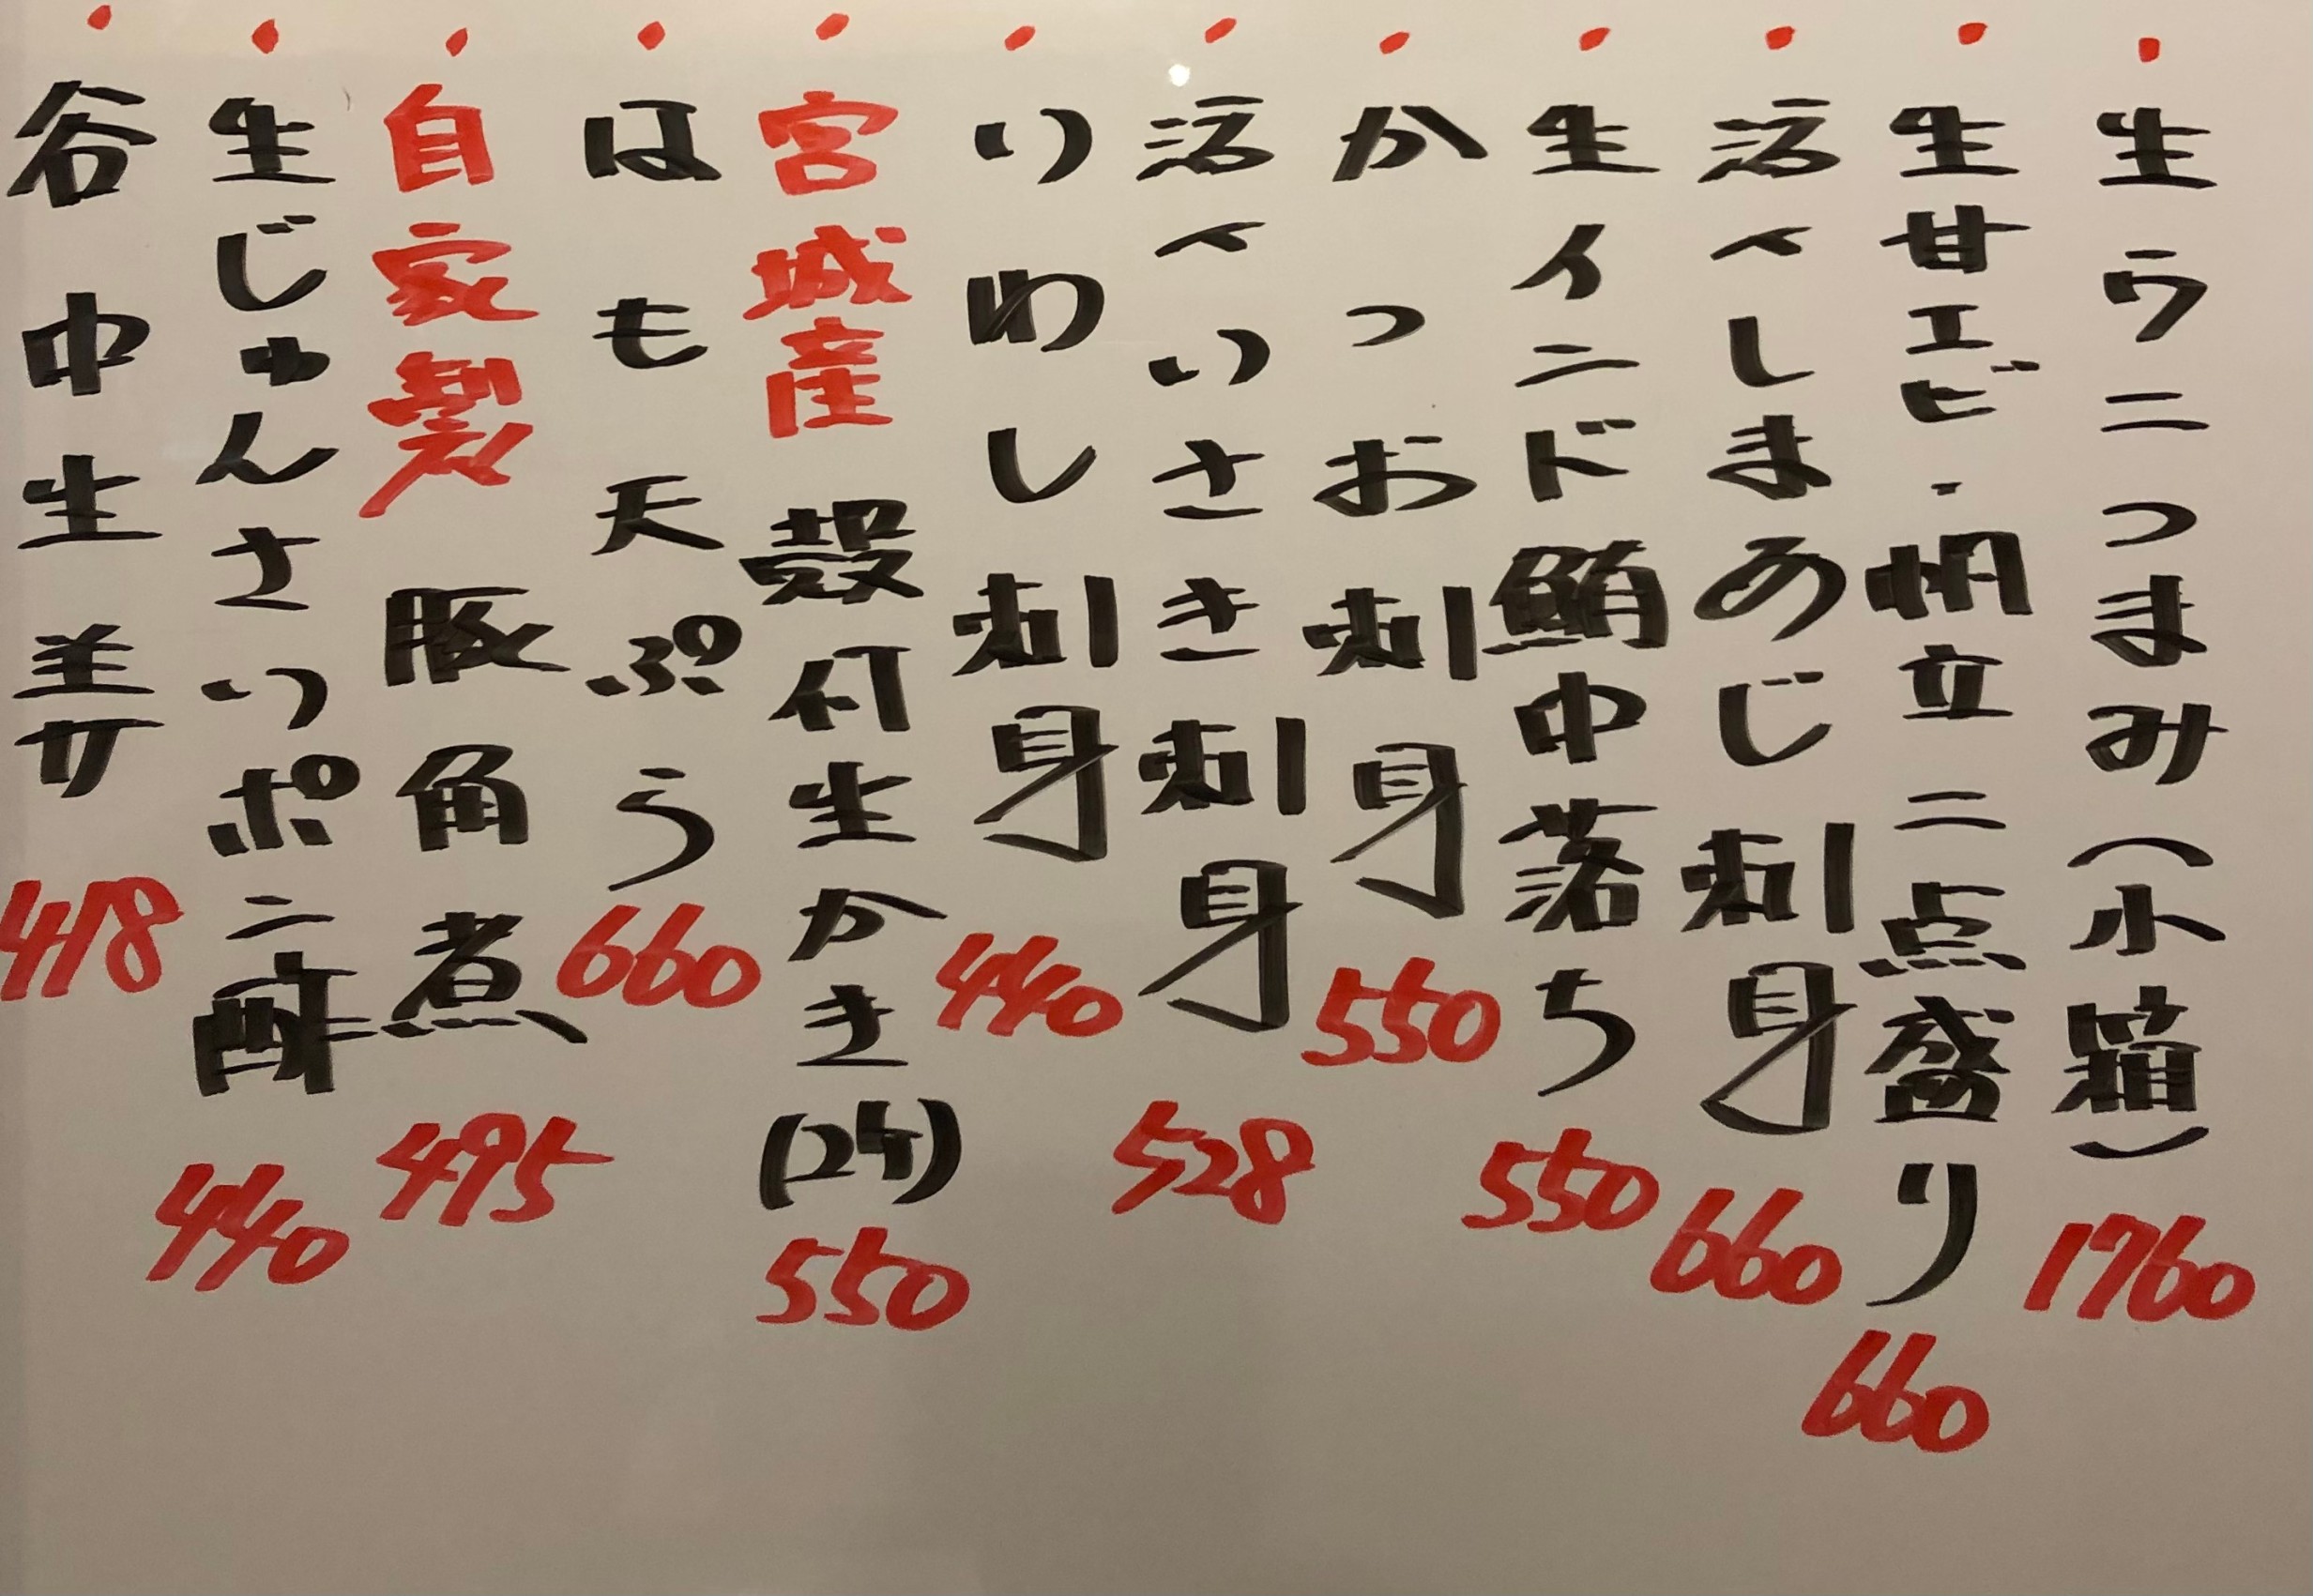 ・生ウニつまみ(小箱) 1760
・生甘エビ・帆立二点盛り 660
・活〆しまあじ刺身 660
・生インド鮪中落ち 550
・かつお刺身 550
・活〆いさき刺身 528
・いわし刺身 440
・宮城産 殻付生かき(2ケ) 550
・はも天ぷら 660
・自家製 豚角煮 495
・生じゅんさいポン酢 440
・谷中生姜 418